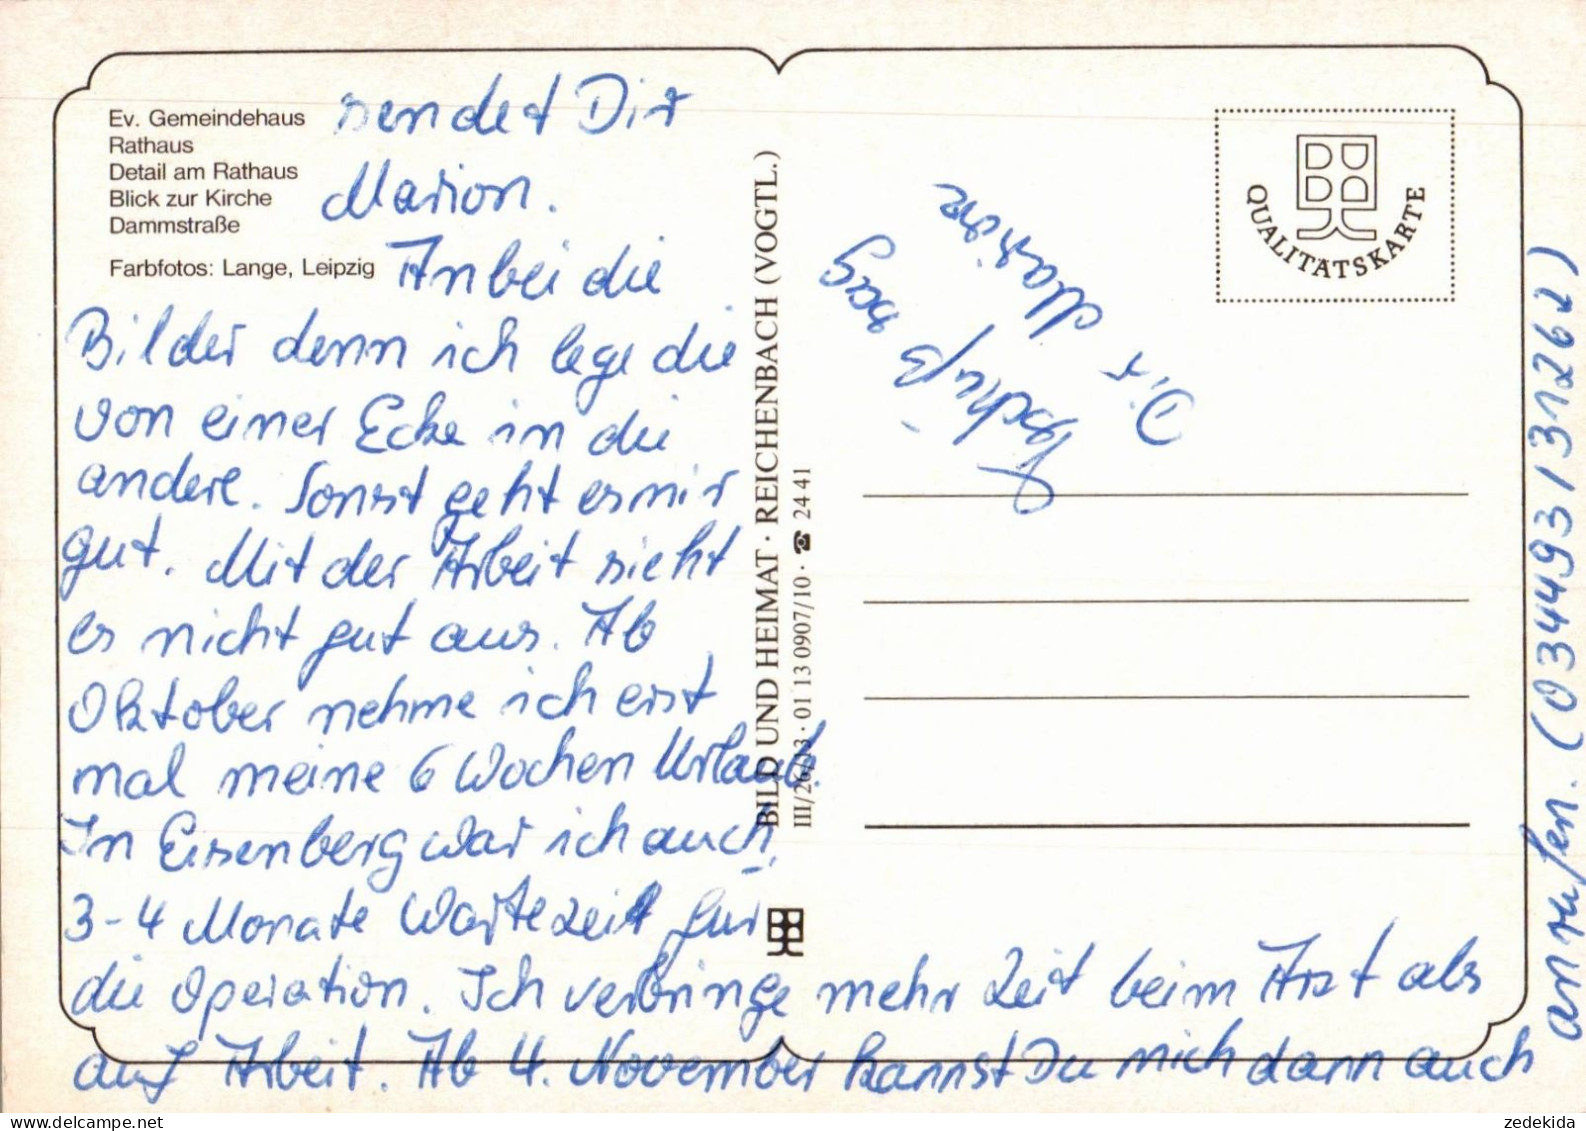 Ev. Gemeindehaus
Rathaus
Detail am Rathaus
Blick zur Kirche
Dammstraße
Farbfotos: Lange, Leipzig
sendet Dir
Marion.
Anbei die
Bilder denn ich lege die
von einer Ecke in die
andere. Sonst geht es mir
gut. Mit der Arbeit sieht
es nicht gut aus. Ab
Oktober nehme ich erst
mal meine 6 Wochen Urlaub.
In Eisenberg war ich auch,
3-4 Monate Wartezeit für
die Operation. Ich verbringe mehr Zeit beim Arzt als
auf Arbeit. Ab 4. November kannst Du mich dann auch
anrufen. (034493/31262)
Tschüß sag
Dir
BILD UND HEIMAT · REICHENBACH (VOGTL.)
III/26/13 · 01 13 0907/10 · ☎ 24 41
QUALITÄTSKARTE
zedekida